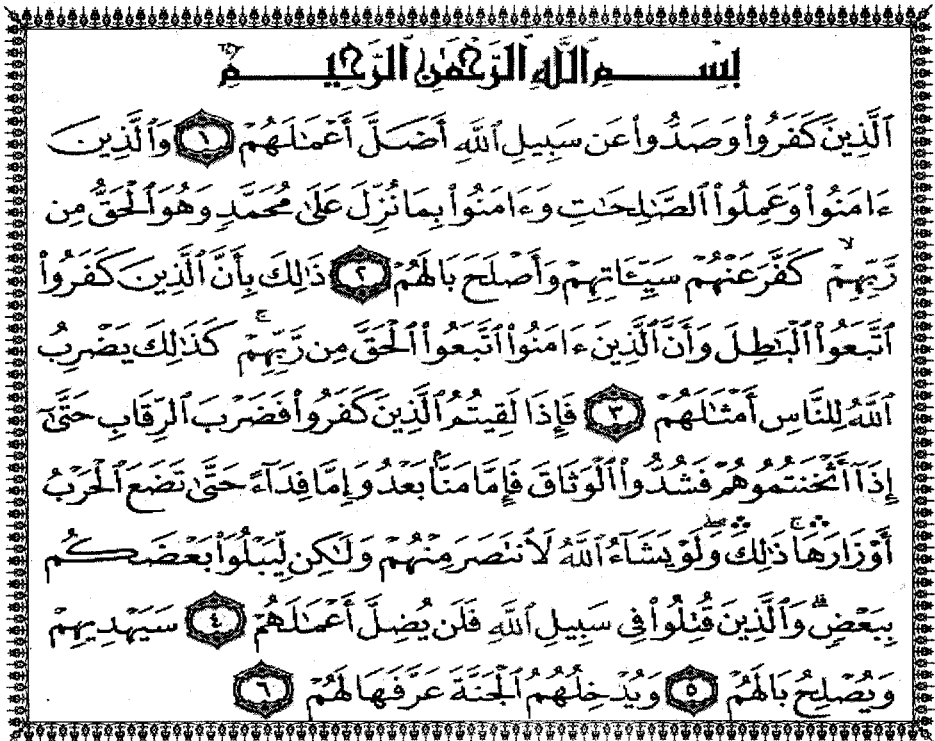 بِسْمِ ٱللَّهِ ٱلرَّحْمَٰنِ ٱلرَّحِيمِ
ٱلَّذِينَ كَفَرُوا۟ وَصَدُّوا۟ عَن سَبِيلِ ٱللَّهِ أَضَلَّ أَعْمَٰلَهُمْ ١ وَٱلَّذِينَ
ءَامَنُوا۟ وَعَمِلُوا۟ ٱلصَّٰلِحَٰتِ وَءَامَنُوا۟ بِمَا نُزِّلَ عَلَىٰ مُحَمَّدٍ وَهُوَ ٱلْحَقُّ مِن
رَّبِّهِمْ ۙ كَفَّرَ عَنْهُمْ سَيِّـَٔاتِهِمْ وَأَصْلَحَ بَالَهُمْ ٢ ذَٰلِكَ بِأَنَّ ٱلَّذِينَ كَفَرُوا۟
ٱتَّبَعُوا۟ ٱلْبَٰطِلَ وَأَنَّ ٱلَّذِينَ ءَامَنُوا۟ ٱتَّبَعُوا۟ ٱلْحَقَّ مِن رَّبِّهِمْ ۚ كَذَٰلِكَ يَضْرِبُ
ٱللَّهُ لِلنَّاسِ أَمْثَٰلَهُمْ ٣ فَإِذَا لَقِيتُمُ ٱلَّذِينَ كَفَرُوا۟ فَضَرْبَ ٱلرِّقَابِ حَتَّىٰٓ
إِذَآ أَثْخَنتُمُوهُمْ فَشُدُّوا۟ ٱلْوَثَاقَ فَإِمَّا مَنًّۢا بَعْدُ وَإِمَّا فِدَآءً حَتَّىٰ تَضَعَ ٱلْحَرْبُ
أَوْزَارَهَا ۛۚ ذَٰلِكَ ۛۖ وَلَوْ يَشَآءُ ٱللَّهُ لَٱنتَصَرَ مِنْهُمْ وَلَٰكِن لِّيَبْلُوَا۟ بَعْضَكُم
بِبَعْضٍ ۗ وَٱلَّذِينَ قُتِلُوا۟ فِى سَبِيلِ ٱللَّهِ فَلَن يُضِلَّ أَعْمَٰلَهُمْ ٤ سَيَهْدِيهِمْ
وَيُصْلِحُ بَالَهُمْ ٥ وَيُدْخِلُهُمُ ٱلْجَنَّةَ عَرَّفَهَا لَهُمْ ٦